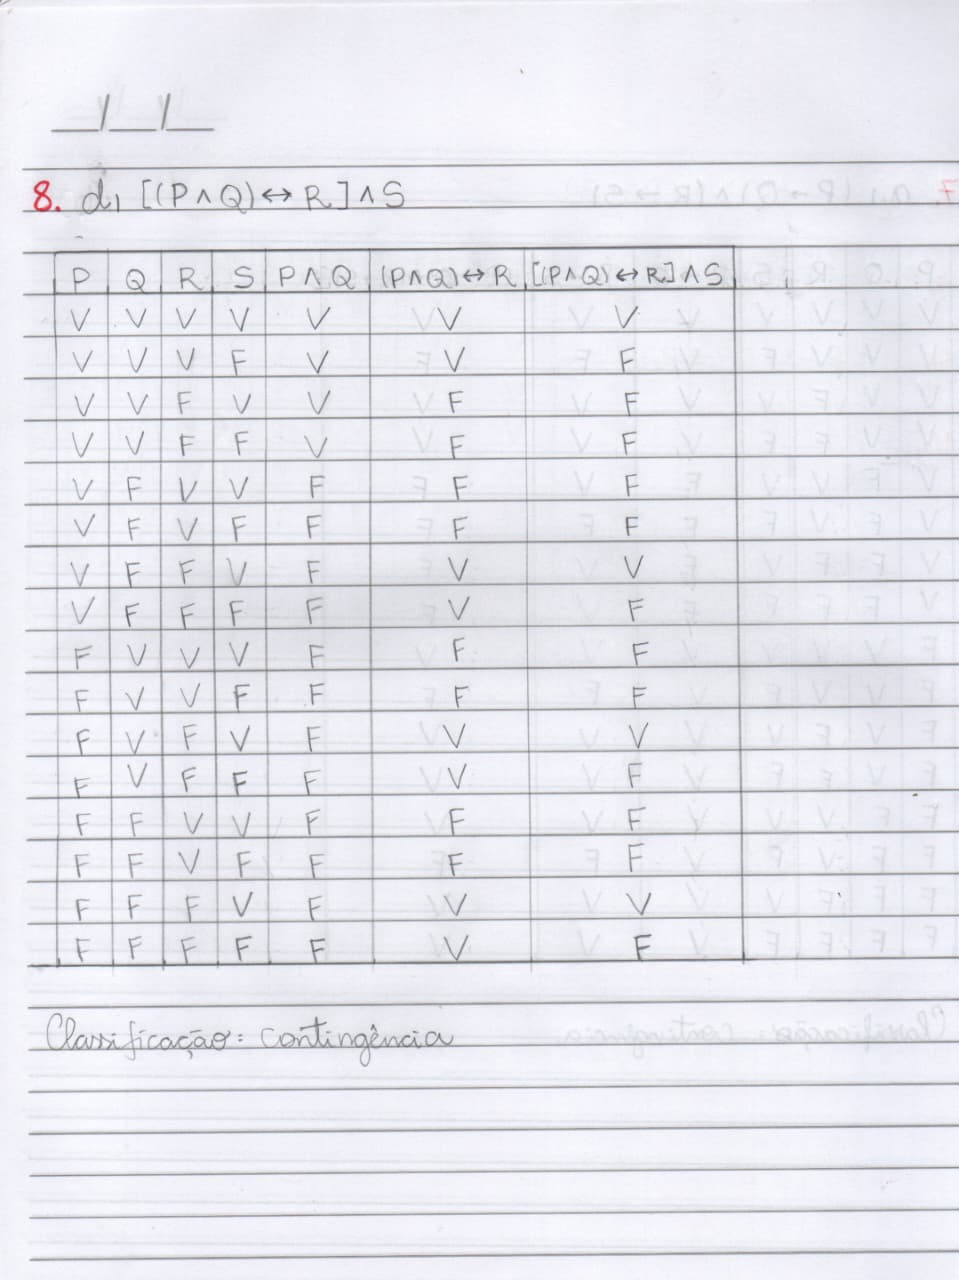 __/__/__
8. d, [(P∧Q)↔R]∧S
P Q R S P∧Q (P∧Q)↔R [(P∧Q)↔R]∧S
V V V V V V V
V V V F V V F
V V F V V F F
V V F F V F F
V F V V F F F
V F V F F F F
V F F V F V V
V F F F F V F
F V V V F F F
F V V F F F F
F V F V F V V
F V F F F V F
F F V V F F F
F F V F F F F
F F F V F V V
F F F F F V F
Classificação: contingência